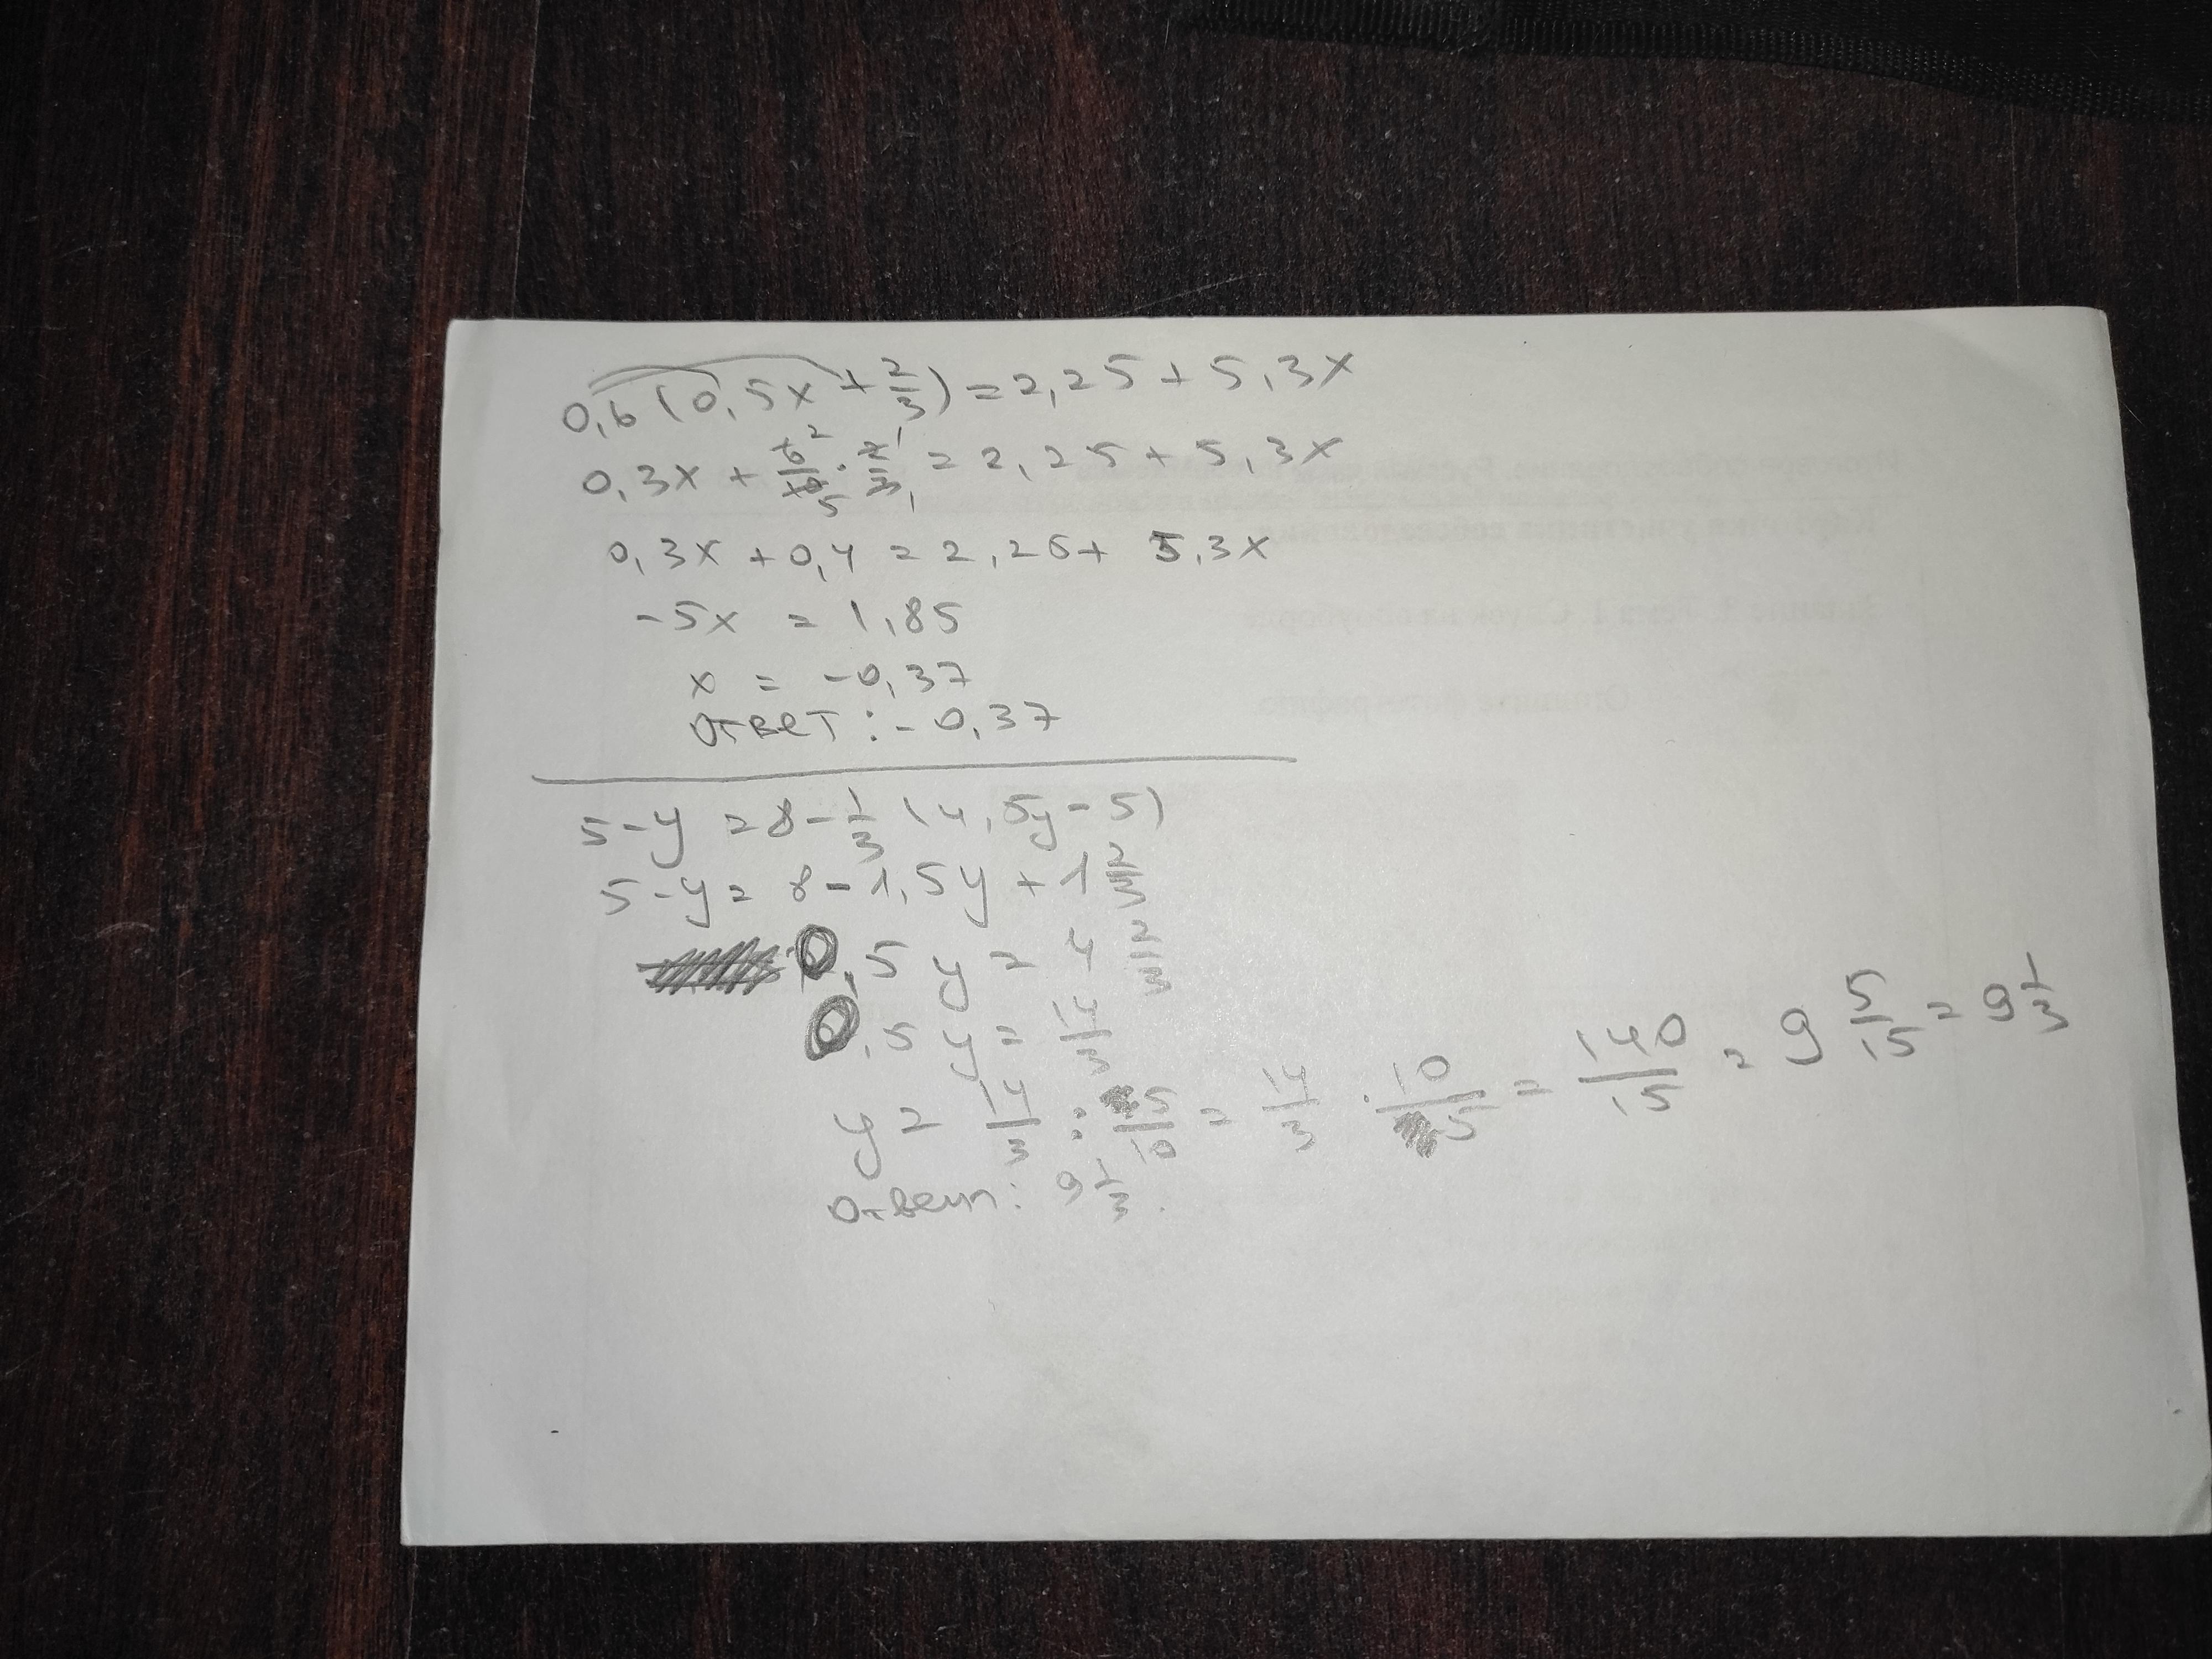 0,6 (0,5x + 2/3) = 2,25 + 5,3x
0,3x + 6²/10 5 · 2¹/3 1 = 2,25 + 5,3x
0,3x + 0,4 = 2,25 + 5,3x
-5x = 1,85
x = -0,37
ответ : -0,37
5-y = 8 - 1/3 (4,5y - 5)
5-y = 8 - 1,5y + 1 2/3
0,5y = 4 2/3
0,5y = 14/3
y = 14/3 : 5/10 = 14/3 · 10/5 = 140/15 = 9 5/15 = 9 1/3
ответ: 9 1/3.